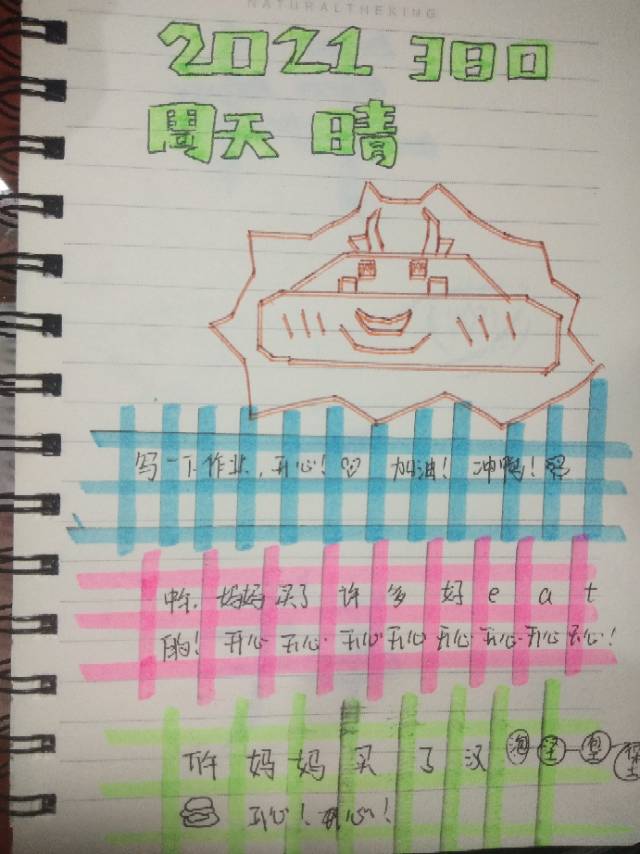 NATURALTHEKING
2021 3日
周天 晴
写一下作业,开心! 加油! 冲鸭!
中午,妈妈买了许多好eat
的! 开心 开心 开心 开心 开心 开心 开心 开心!
下午妈妈买了汉
堡 堡 堡
开心! 开心!